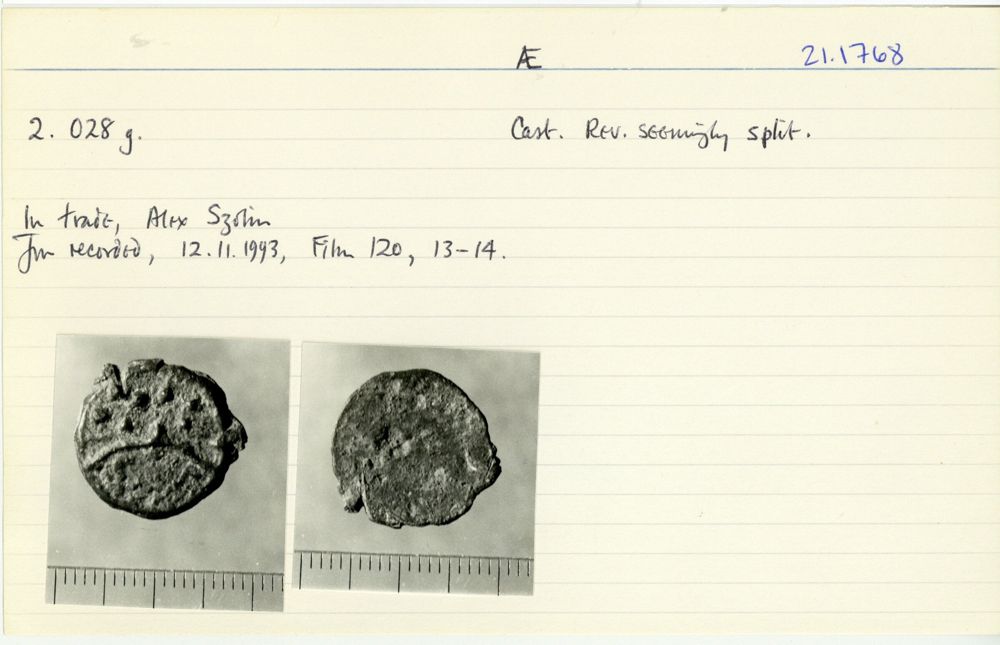 Æ 21.1768
2. 028 g. Cast. Rev. seemingly split.
In trade, Alex Szolin
recorded, 12.11.1993, Film 120, 13-14.